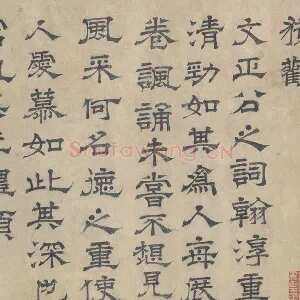 獲觀
文正公之詞翰淳重
清勁如其爲人每展
卷諷誦未嘗不想見
風采何名德之重使
人愛慕如此其深也